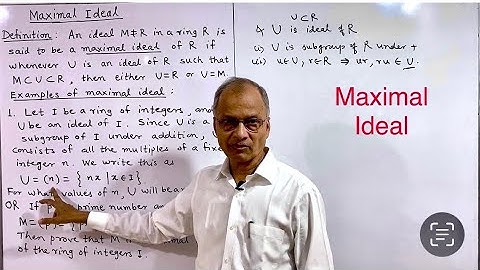 Maximal Ideal
Definition: An ideal M≠R in a ring R is
said to be a maximal ideal of R if
whenever U is an ideal of R such that
M⊂U⊂R, then either U=R or U=M.
Examples of maximal ideal:
1. Let I be a ring of integers, and
U be an ideal of I. Since U is a
subgroup of I under addition,
consists of all the multiples of a fixe
integer n. We write this as
U = (n) = { nx | x∈I }
For what values of n, U will be a
OR If prime number an
M = (p) = {
Then prove that M is imal
of the ring of integers I.
U⊂R
& U is ideal of R
(i) U is subgroup of R under +
(ii) u∈U, r∈R ⇒ ur, ru ∈ U.
Maximal
Ideal